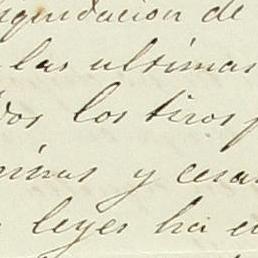 liquidacion de
las ultimas
dos los tiros
minas y cesa
leyes ha